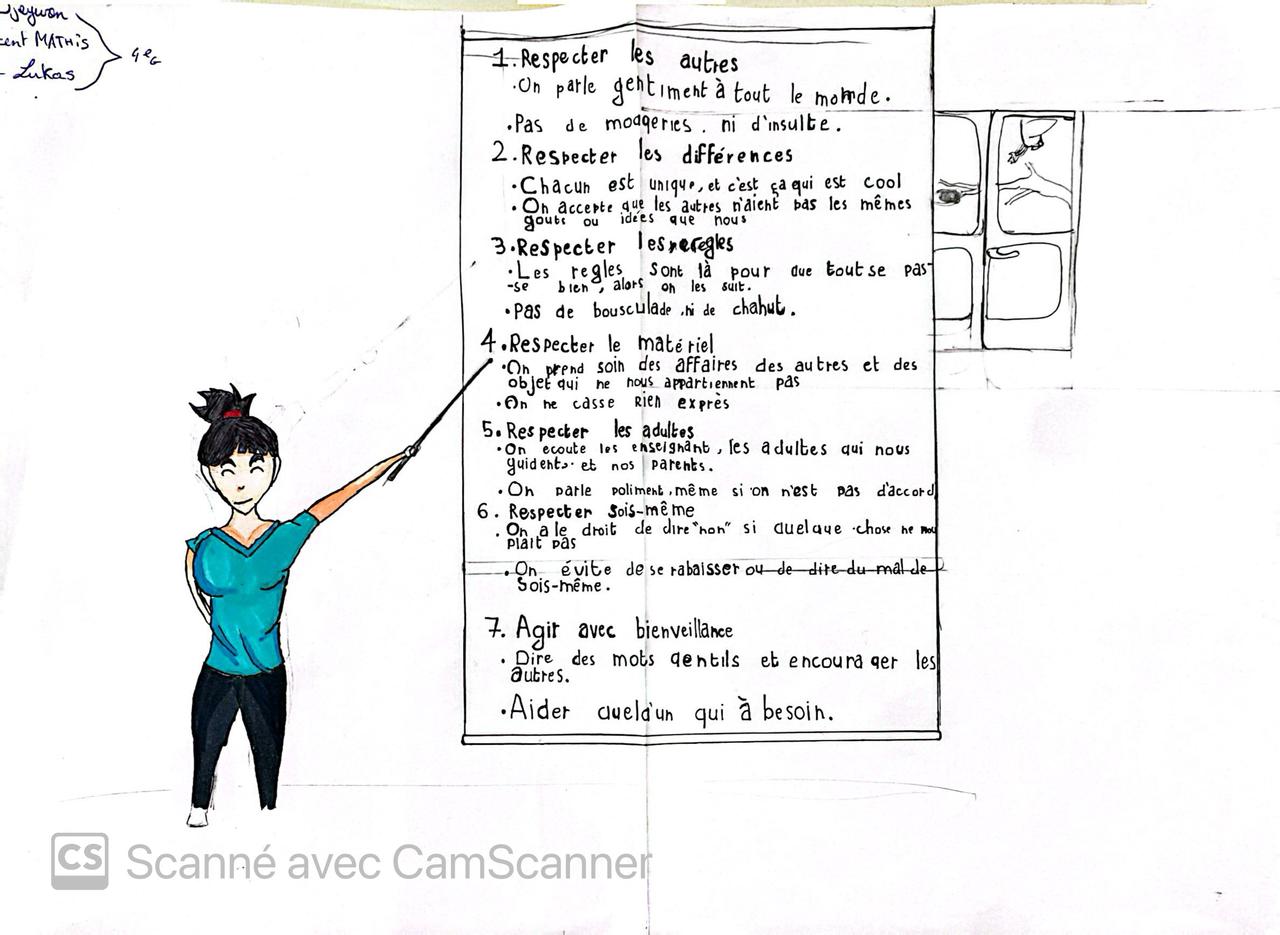 Djeywon
cent MATHIS
- Lukas
4eG
1. Respecter les autres
·On parle gentiment à tout le monde.
·Pas de moqueries, ni d'insulte.
2. Respecter les différences
·Chacun est unique, et c'est ça qui est cool
·On accepte que les autres n'aient pas les mêmes
gouts ou idées que nous
3. Respecter les regles
·Les regles sont là pour que tout se pas-
-se bien, alors on les suit.
·Pas de bousculade, ni de chahut.
4. Respecter le matériel
·On prend soin des affaires des autres et des
objet qui ne nous appartiennent pas
·On ne casse rien exprès
5. Respecter les adultes
·On ecoute les enseignant, les adultes qui nous
guident, et nos parents.
·On parle poliment, même si on n'est pas d'accord
6. Respecter Sois-même
·On a le droit de dire "non" si quelque chose ne nous
plait pas
·On évite de se rabaisser ou de dire du mal de
Sois-même.
7. Agir avec bienveillance
·Dire des mots gentils et encourager les
autres.
·Aider quelqu'un qui à besoin.
CS Scanné avec CamScanner